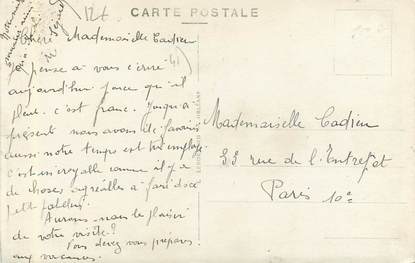 CARTE POSTALE
12f
Chère Mademoiselle Cadieu
pense à vous écrire
aujourd'hui parce qu'il
pleut. c'est franc. Jusqu'à
présent nous avons de
aussi notre temps est très employé
c'est incroyable comme il y a
de choses agréables à faire
Aurons-nous le plaisir
de votre visite?
Vous devez vous préparer
aux vacances.
Mademoiselle Cadieu
33 rue de l'Entrepot
Paris 10e